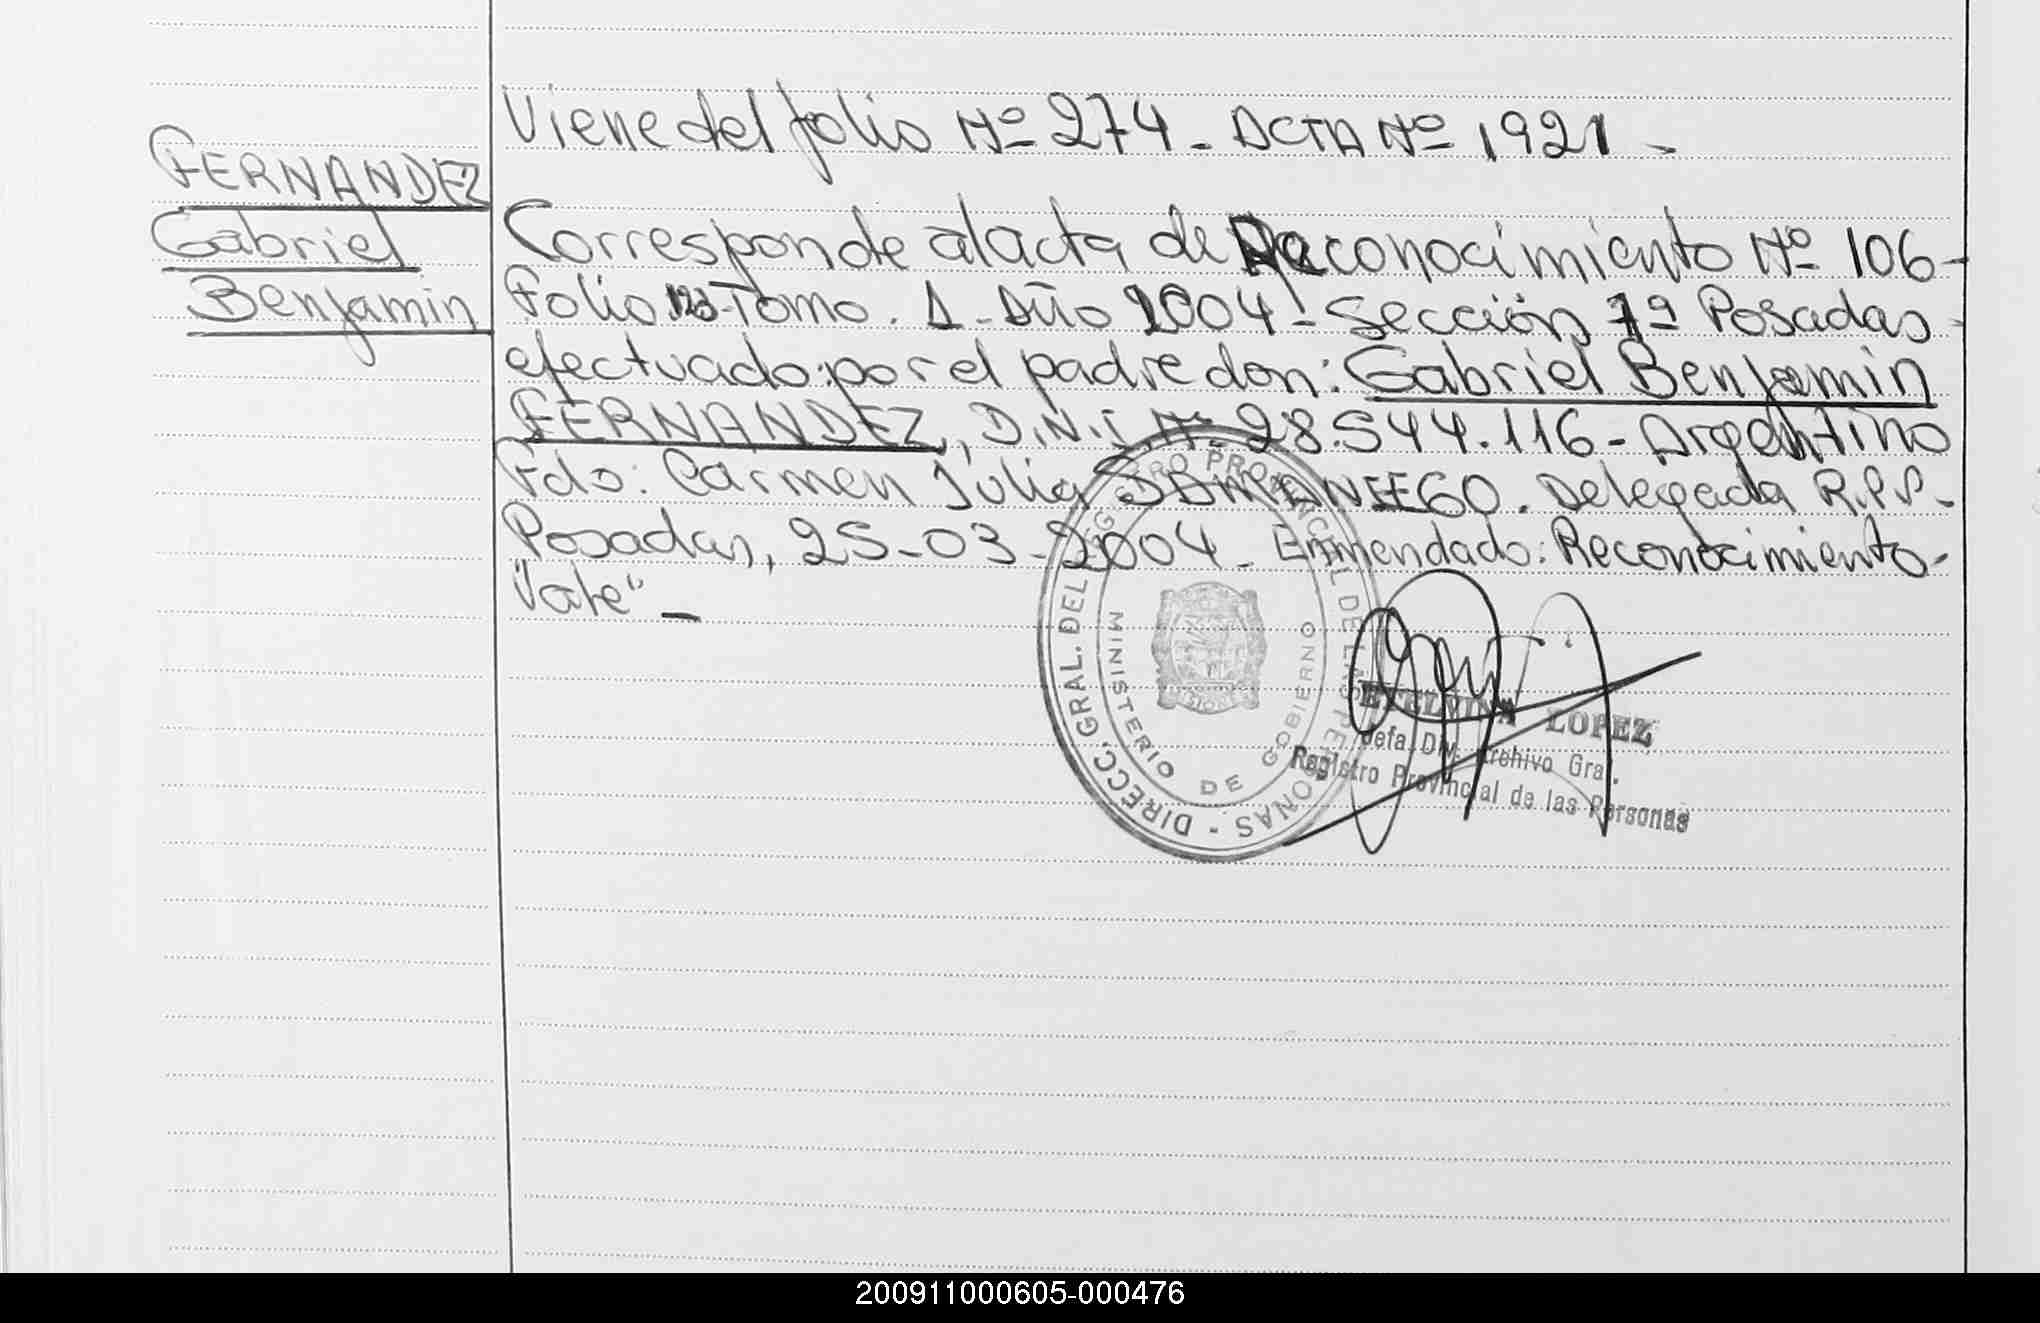 Viene del folio Nº 274 - ACTA Nº 1921 -
FERNANDEZ
Gabriel
Benjamin
Corresponde al acta de Reconocimiento Nº 106-
Folio Tomo. 1 - Año 2004 - Sección 1ª Posadas -
efectuado: por el padre don: Gabriel Benjamin
FERNANDEZ, D.N.I. Nº 28.544.116 - Argentino
Fdo: Carmen Julia Delegada R.P.P.-
Posadas, 25-03-2004 - Enmendado: Reconocimiento-
Vale" —
DIRECC. GRAL. DEL REGISTRO PROVINCIAL DE LAS PERSONAS -
MINISTERIO DE GOBIERNO
MISIONES
ETELVINA LOPEZ
Jefa Div. Archivo Gral.
Registro Provincial de las Personas
200911000605-000476